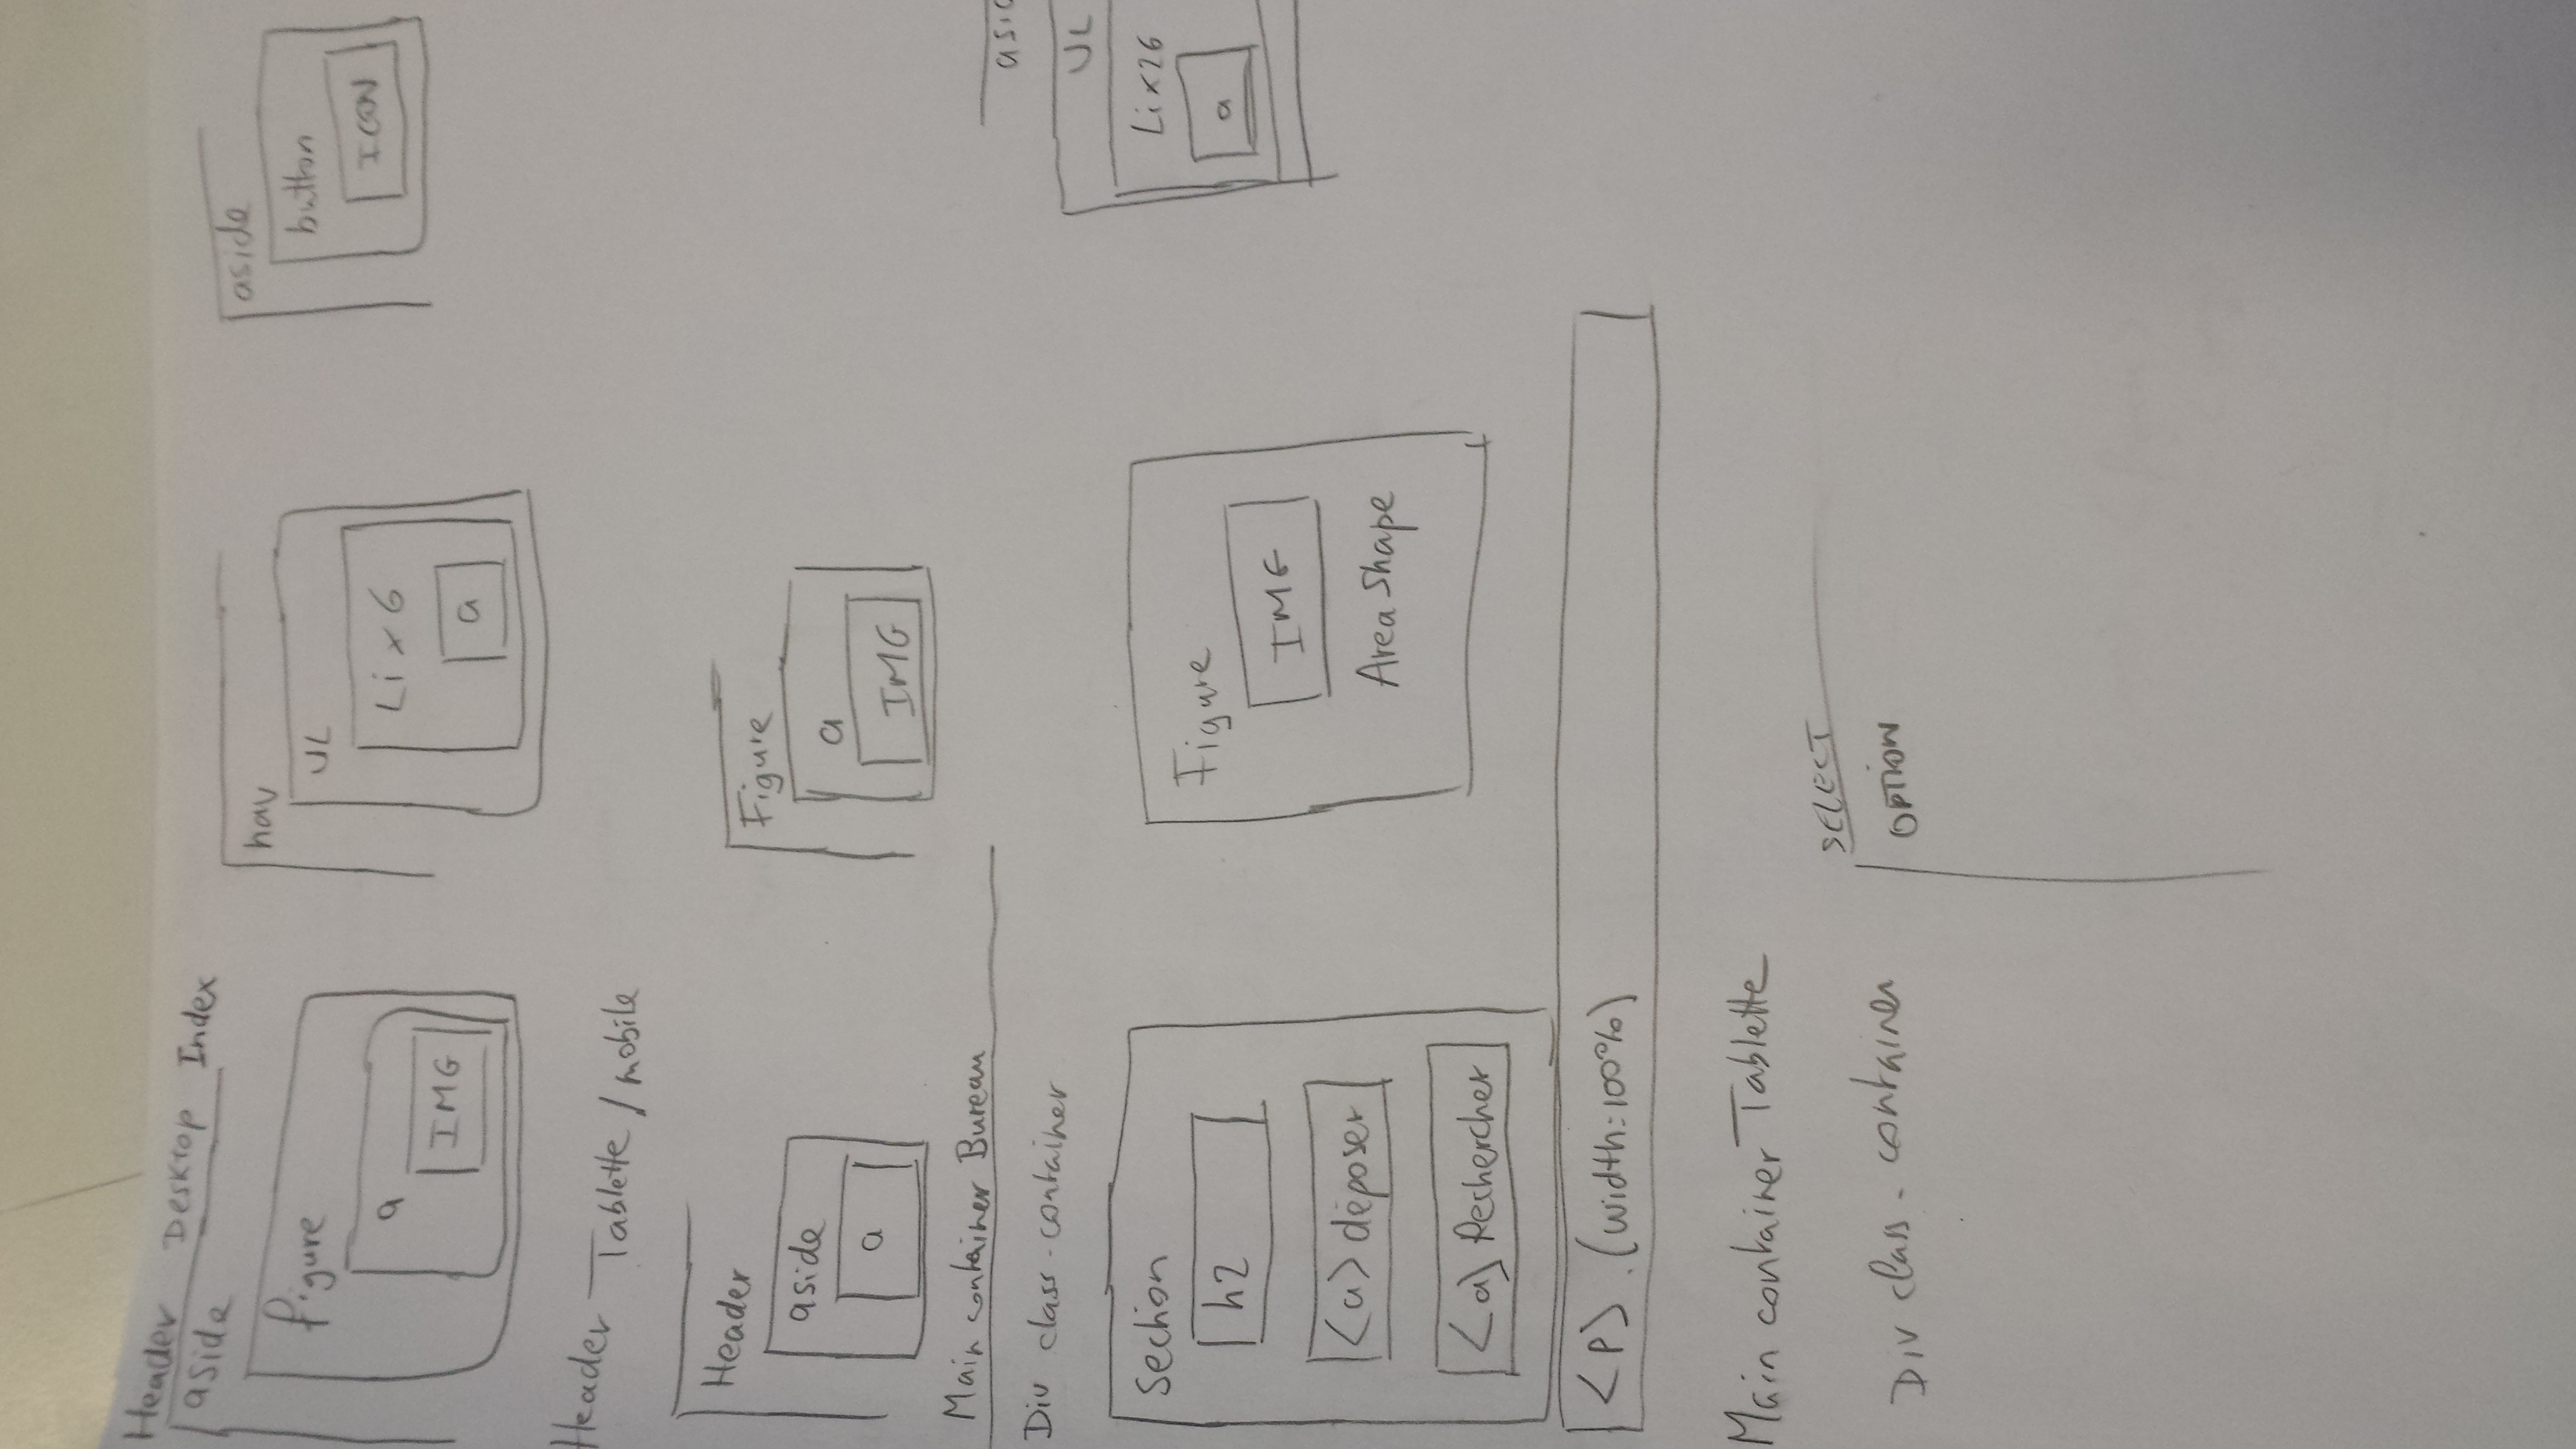 Header Desktop Index
aside
figure
a
IMG
nav
UL
Li x 6
a
aside
button
ICON
Header Tablette / mobile
Header
aside
a
Figure
a
IMG
Main container Bureau
Div class-container
Section
h2
<a> déposer
<a> Rechercher
Figure
IMG
Area Shape
UL
Li x 26
a
<P> (width:100%)
Main container Tablette
Div class-container
SELECT
OPTION